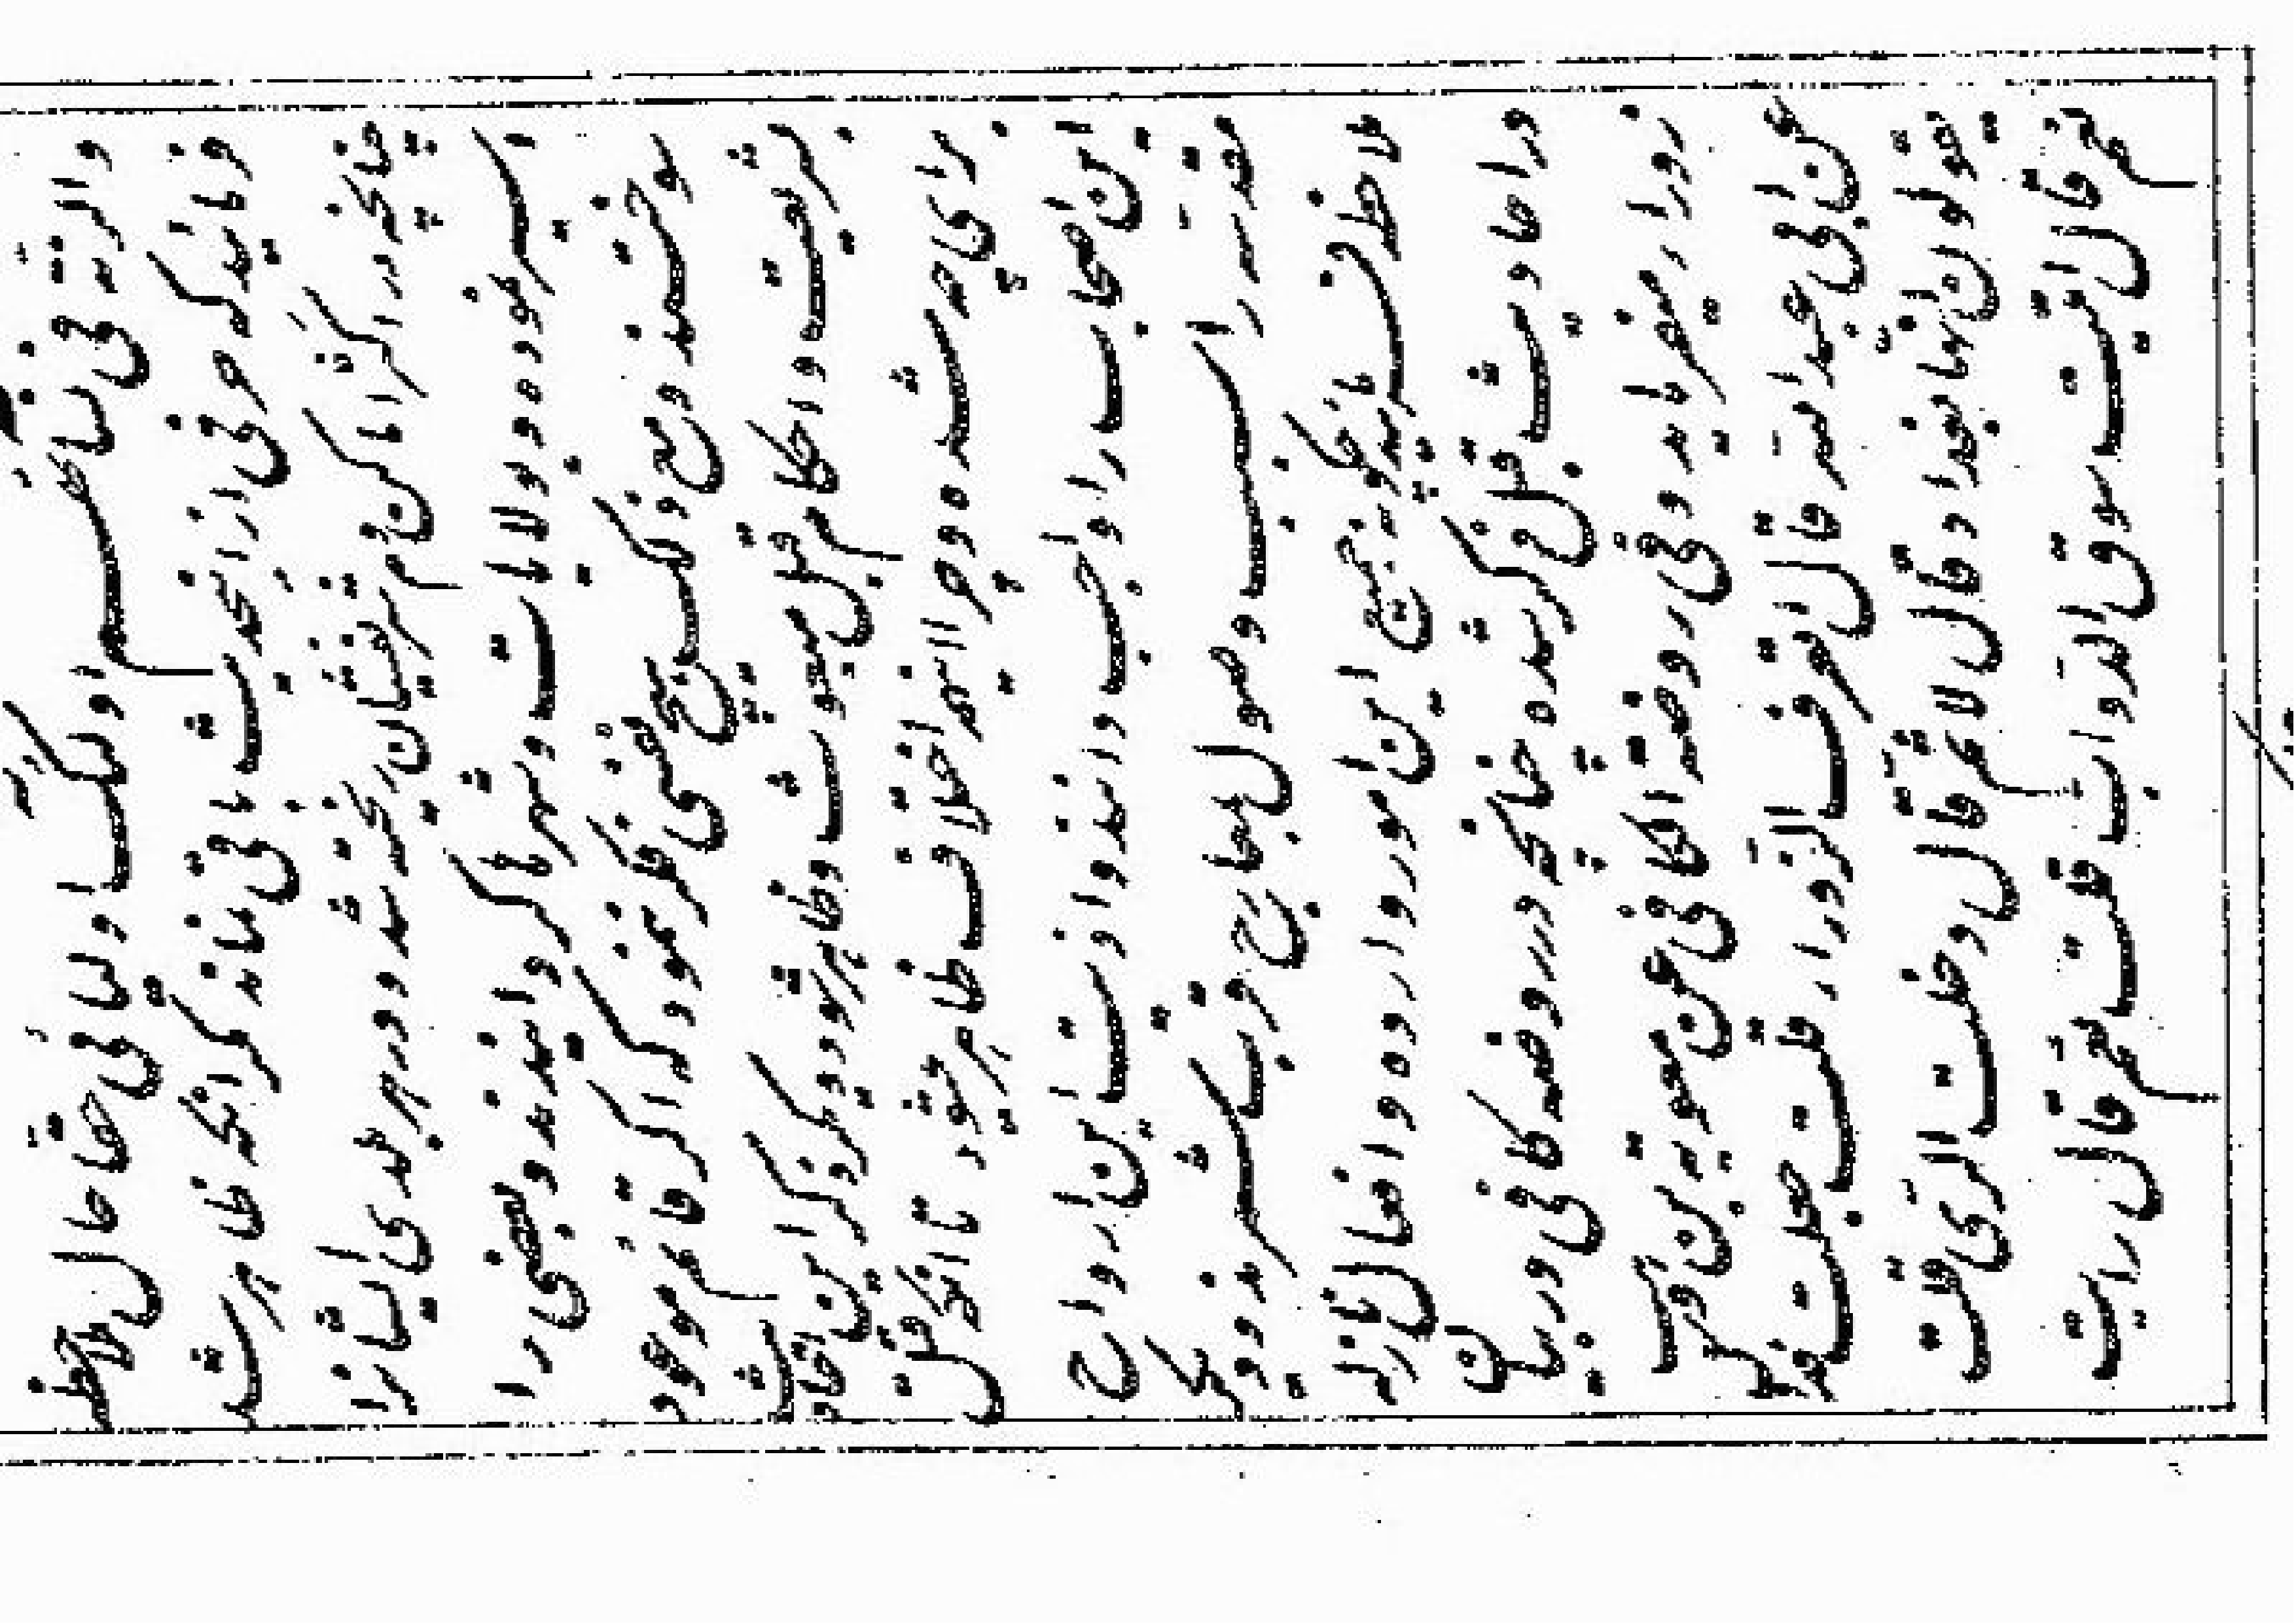 والرّنّة فی نسائهم اولئک اولیائی حقّا حال ملاحظه
فرمائید که حرفی از این حدیث باقی نماند مگر آنکه ظاهر شد
چنانچه در اکثر اماکن دم شریفشان ریخته شد و در هر بلدی ایشانرا
اسیر نموده و بولایات و شهرها گردانیدند و بعضی را
سوختند و مع ذلک هیچ نفسی فکر ننمود که اگر قائم موعود
بشریعت و احکام قبل مبعوث و ظاهر شود دیگر ذکر این احادیث
برای چه شده و چرا اینهمه اختلاف ظاهر میشود تا آنکه قتل
این اصحاب را واجب دانند و اذیّت این ارواح
مقدّسه را سبب وصول بمعارج قرب شمرند و دیگر
ملاحظه فرمائید چگونه جمیع این امور وارده و افعال نازله
در احادیث قبل ذکر شده چنانچه در روضه کافی در بیان
زوراء میفرماید و فی روضة الکافی عن معویة بن وهب
عن ابی عبدالله قال اتعرف الزّوراء قلت جعلت فداک
یقولون انّها بغداد قال لا ثمّ قال دخلت الرّی قلت
نعم قال اتیت سوق الدّواب قلت نعم قال رایت